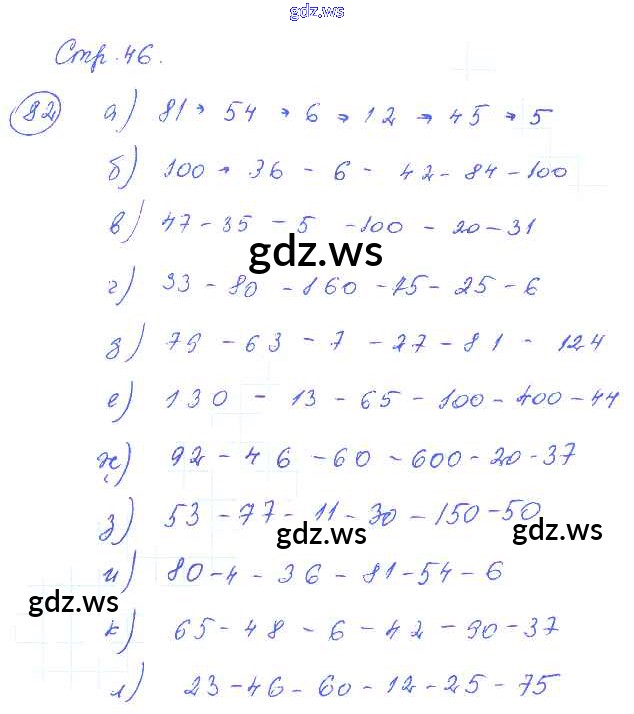 gdz.ws
Стр. 46.
92 а) 81 → 54 → 6 → 12 → 45 → 5
б) 100 → 36 - 6 - 42 - 84 - 100
в) 47 - 35 - 5 - 100 - 20 - 31
gdz.ws
г) 93 - 80 - 160 - 75 - 25 - 6
д) 79 - 63 - 7 - 27 - 81 - 124
е) 130 - 13 - 65 - 100 - 400 - 44
ж) 92 - 46 - 60 - 600 - 20 - 37
з) 53 - 77 - 11 - 30 - 150 - 50
gdz.ws gdz.ws
и) 80 - 4 - 36 - 81 - 54 - 6
gdz.ws
к) 65 - 48 - 6 - 42 - 90 - 37
л) 23 - 46 - 60 - 12 - 25 - 75